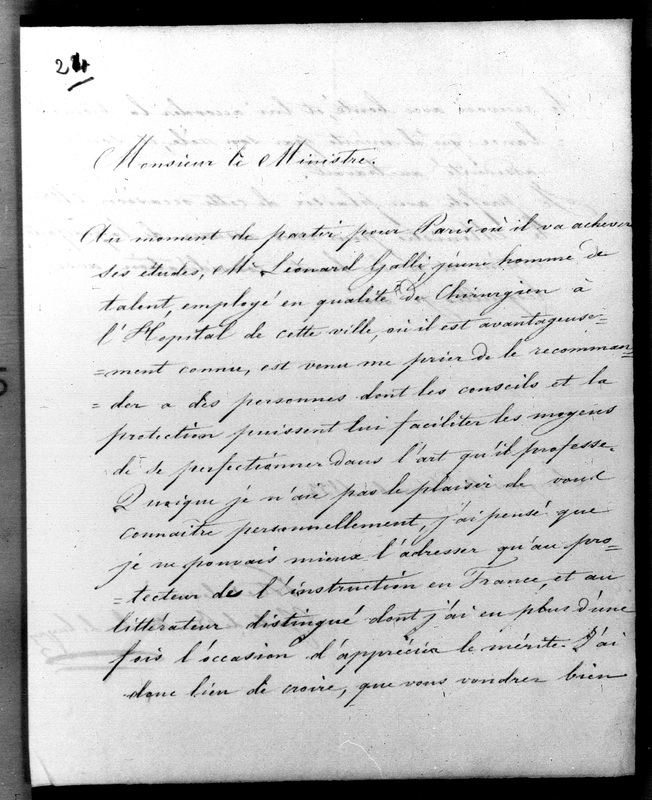 24
Monsieur le Ministre.
Au moment de partir pour Paris où il va achever
ses études, Mr Léonard Galli, jeune homme de
talent, employé en qualité de Chirurgien à
l'Hopital de cette ville, où il est avantageuse-
=ment connu, est venu me prier de le recomman=
=der a des personnes dont les conseils et la
protection puissent lui faciliter les moyens
de se perfectionner dans l'art qu'il professe.
Quoique je n'aie pas le plaisir de vous
connaitre personnellement, j'ai pensé que
je ne pouvais mieux l'adresser qu'au pro-
-tecteur de l'instruction en France, et au
littérateur distingué dont j'ai eu plus d'une
fois l'occasion d'apprécier le mérite. J'ai
donc lieu de croire, que vous voudrez bien